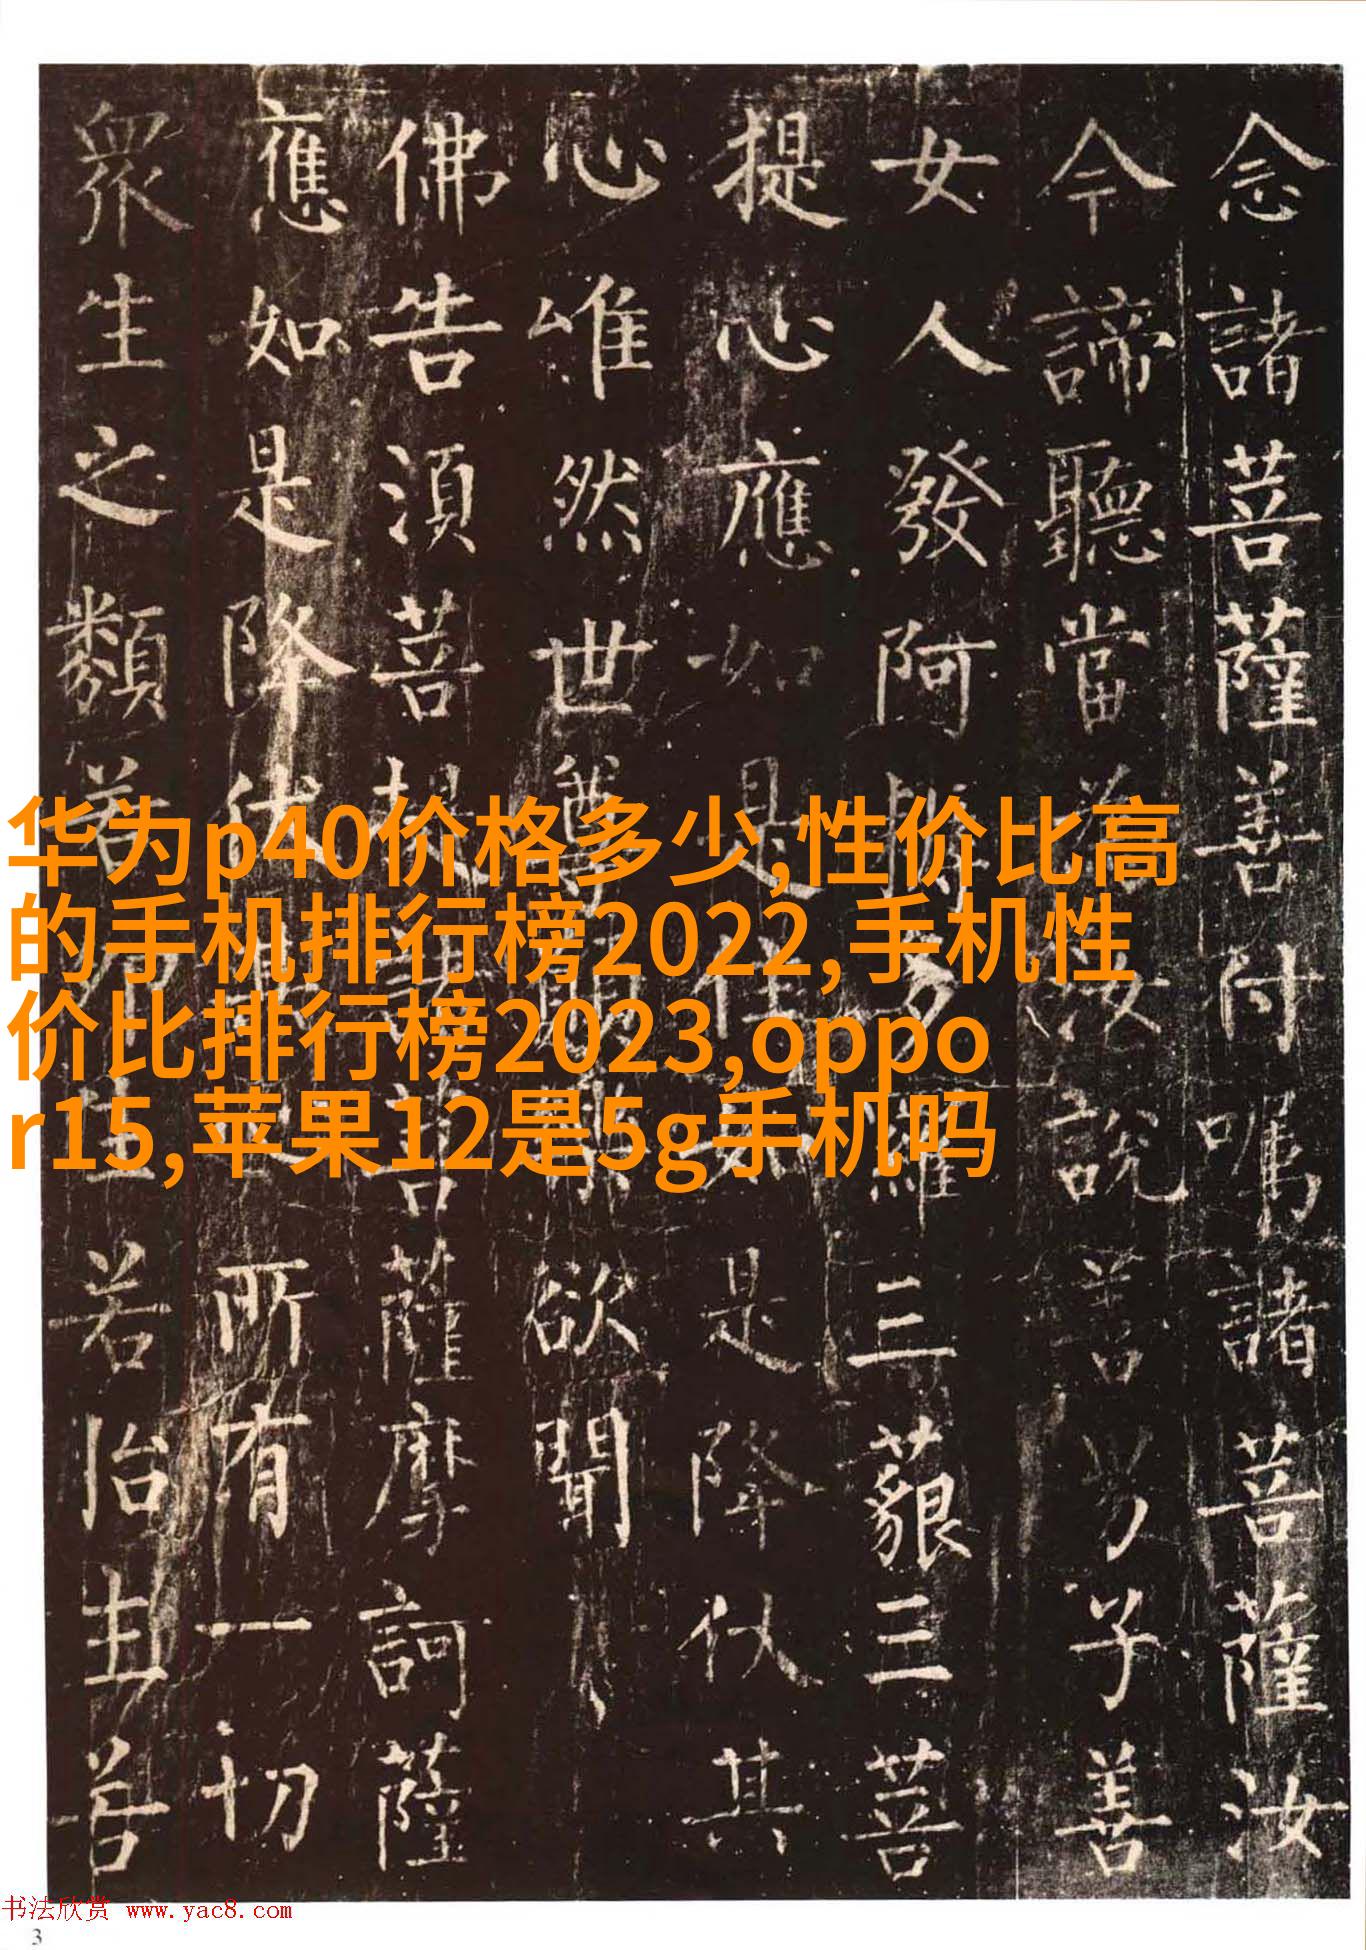 念諸菩薩善付嘱諸菩薩汝
今諦聽當為汝說善男子善
女人發阿耨多羅三藐三菩
提心應如是住如是降伏其
心唯然世尊願樂欲聞
佛告須菩提諸菩薩摩訶薩
應如是降伏所有一切
衆生之類若卵生若胎生若
华为p40价格多少,性价比高
的手机排行榜2022,手机性
价比排行榜2023,oppo
r15,苹果12是5g手机吗
书法欣赏 www.yac8.com
3